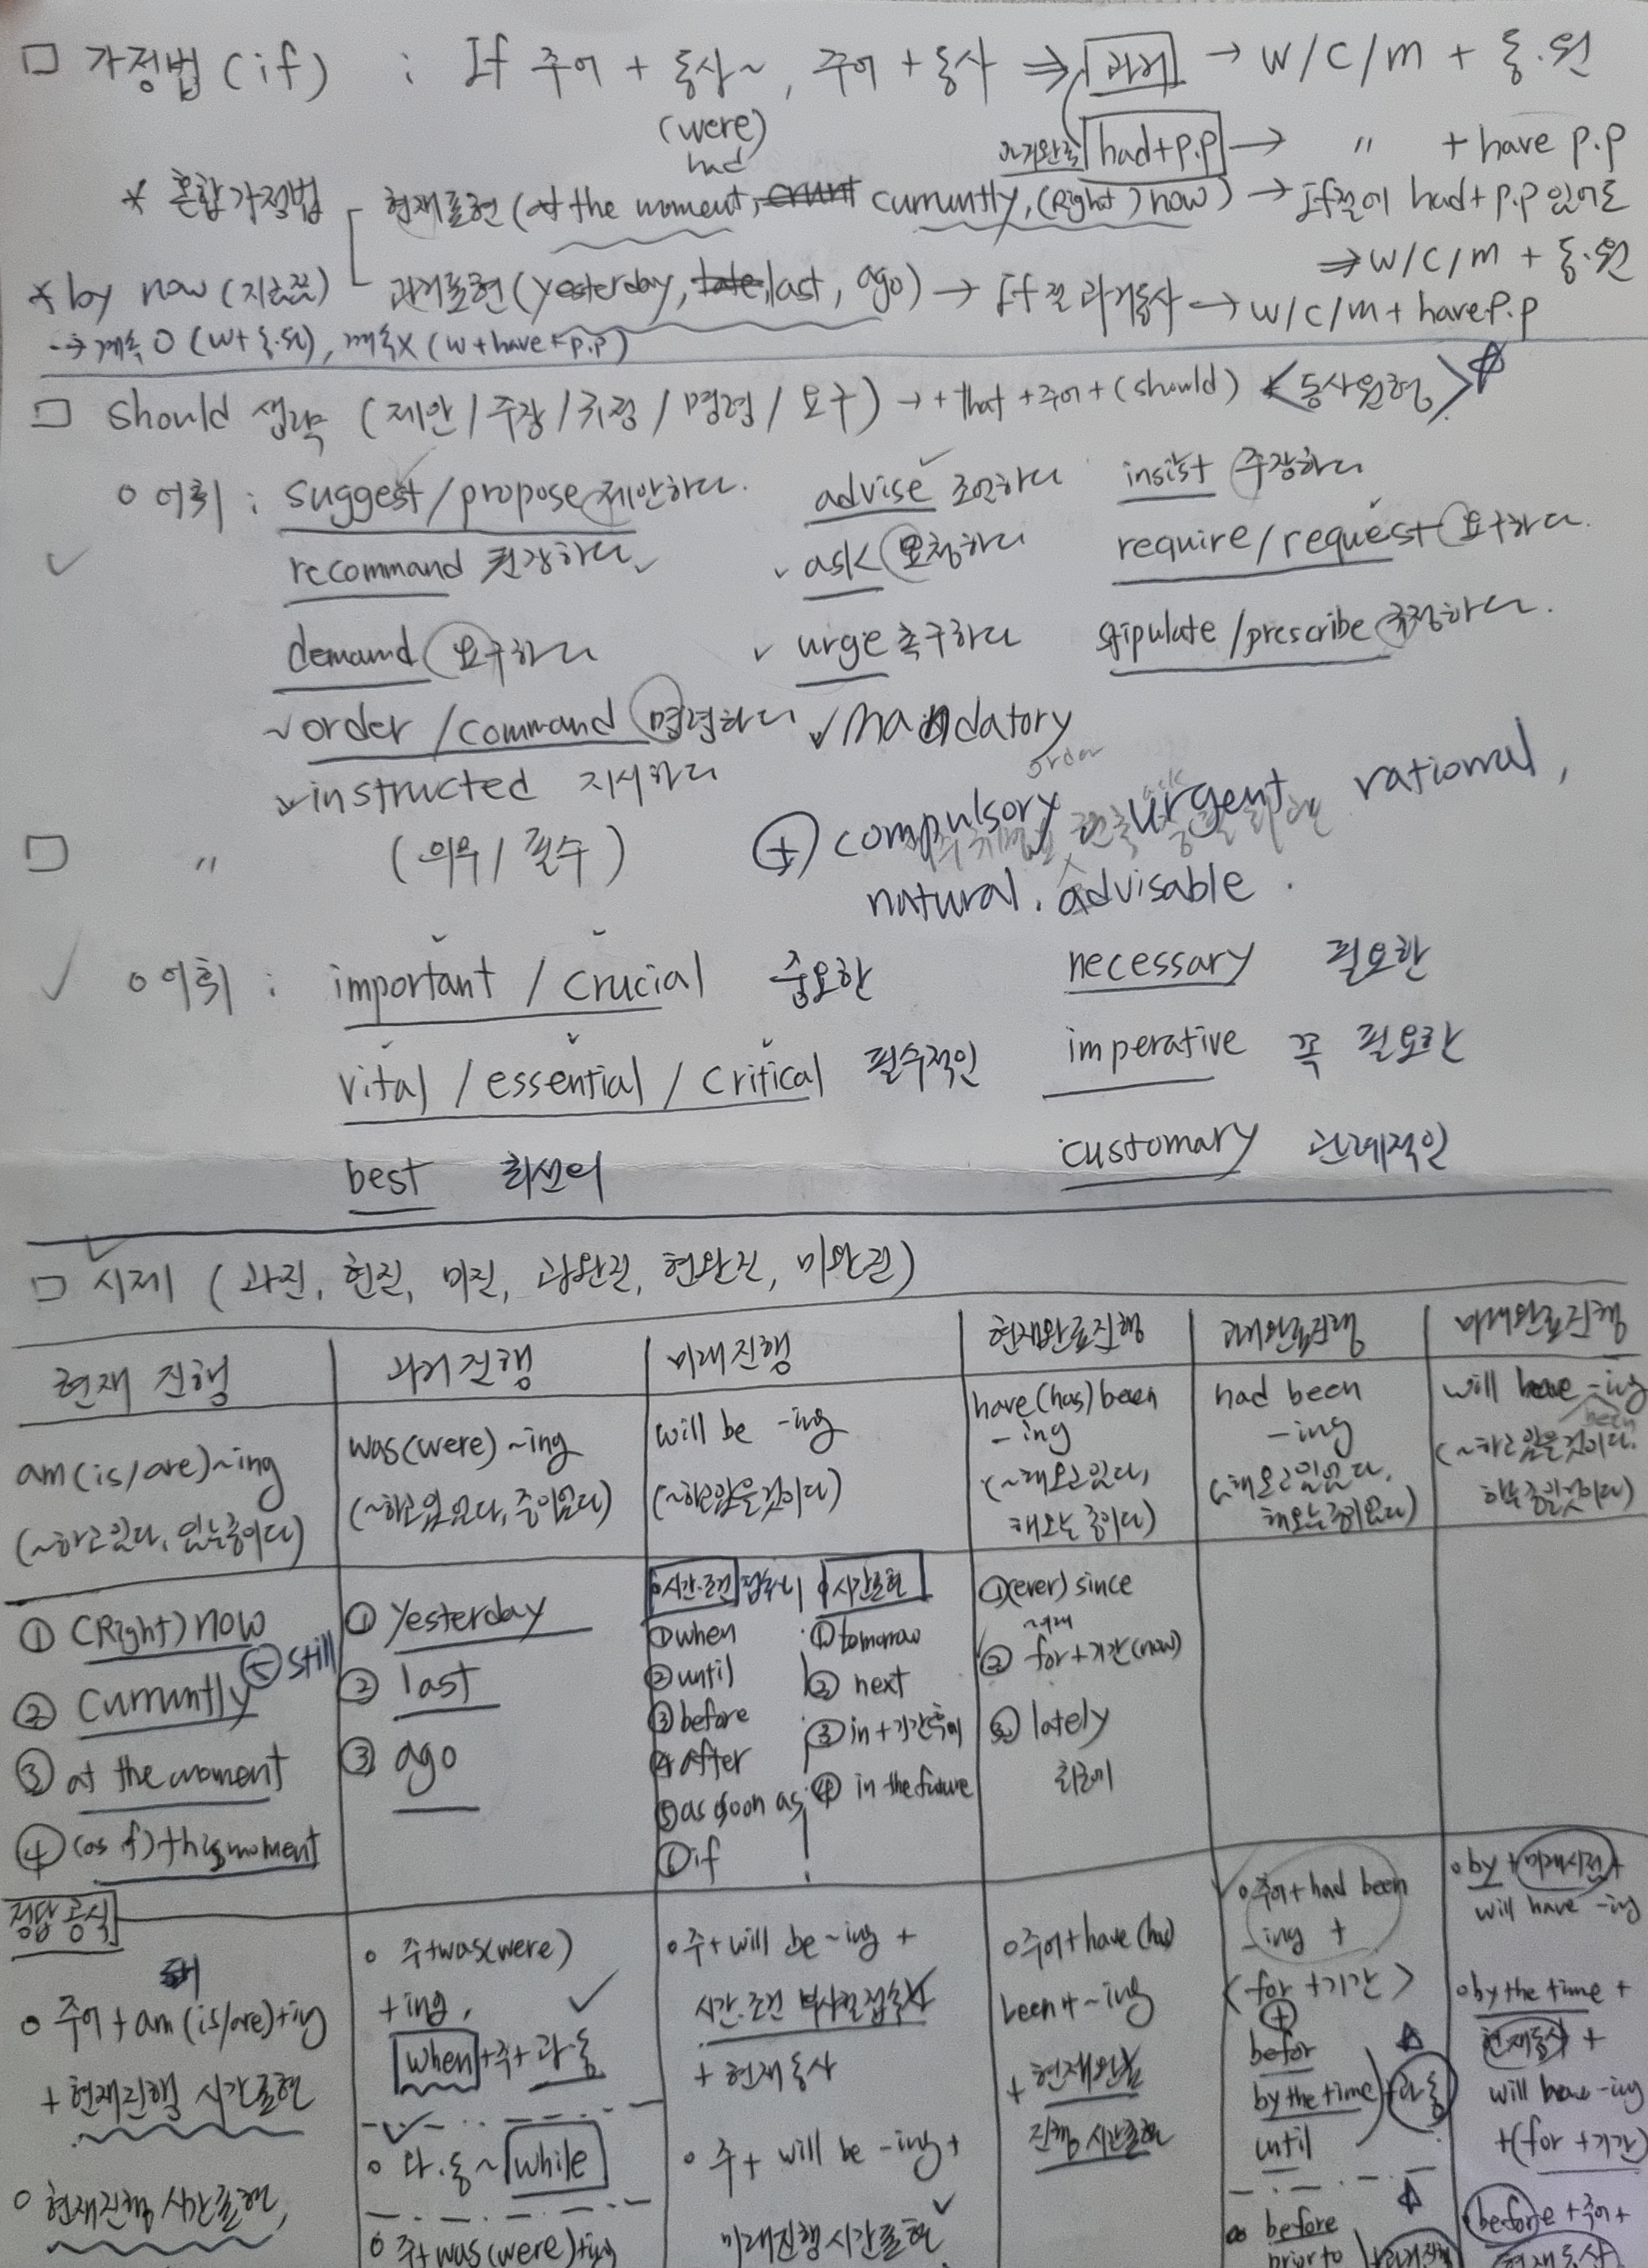 □ 가정법 (if) : If 주어 + 동사~, 주어 + 동사 ⇒ 과거 → w/c/m + 동.원
(were)
had
과거완료 had+p.p → 〃 + have p.p
* 혼합가정법 현재표현 (at the moment, curruntly, (Right) now) → If절에 had+p.p 있어도
⇒ w/c/m + 동.원
* by now (지금쯤) 과거표현 (yesterday, last, ago) → If절 과거동사 → w/c/m + have p.p
→ 계속 O (w+동.원), 계속X (w+have+p.p)
□ should 생략 (제안 / 주장 / 규정 / 명령 / 요구) → + that + 주어 + (should) <동사원형> ☆
○ 어휘 : suggest / propose 제안하다. advise 조언하다 insist 주장하다
recommand 권장하다 ask 요청하다 require / request 요구하다.
demand 요구하다 urge 촉구하다 stipulate / prescribe 규정하다.
order / command 명령하다 mandatory
order
instructed 지시하다
□ 〃 (의무 / 필수) ⊕ compulsory urgent rational,
natural, advisable.
○ 어휘 : important / crucial 중요한 necessary 필요한
vital / essential / critical 필수적인 imperative 꼭 필요한
best 최선의 customary 관례적인
□ 시제 (과진, 현진, 미진, 과완진, 현완진, 미완진)
현재 진행 과거 진행 미래 진행 현재완료진행 과거완료진행 미래완료진행
am (is/are) ~ing
(~하고있다, 있는중이다)
was(were) ~ing
(~하고있었다, 중이었다)
will be -ing
(~하고있을것이다)
have (has) been
-ing
(~해오고있다,
해오는 중이다)
had been
-ing
(~해오고있었다,
해오는중이었다)
will have -ing
been
(~하고있을것이다.
하는중일것이다)
① (Right) now
② curruntly
⑤ still
③ at the moment
④ (as of) this moment
① yesterday
② last
③ ago
○시간·조건 접속사
① when
② until
③ before
④ after
⑤ as soon as
⑥ if
○시간표현
① tomorrow
② next
③ in + 기간후에
④ in the future
① (ever) since
~이래
② for + 기간 (now)
③ lately
최근에
정답 공식
○ 주어 + am (is/are) + ing
+ 현재진행 시간표현
○ 현재진행 시간표현,
○ 주+was(were)
+ing,
when + 주 + 과.동
○ 과.동 ~ while
○ 주+was(were)+ing
○ 주 + will be ~ing +
시간.조건 부사절접속사
+ 현재동사
○ 주 + will be -ing +
미래진행 시간표현
○ 주어 + have (has)
been + ~ing
+ 현재완료
진행 시간표현
○ 주어 + had been
-ing +
<for + 기간>
⊕
befor
by the time + 과.동
until
before
prior to
○ by + 미래시점 +
will have -ing
○ by the time +
현재동사 +
will have -ing
+ (for + 기간)
before + 주어 +
현재동사